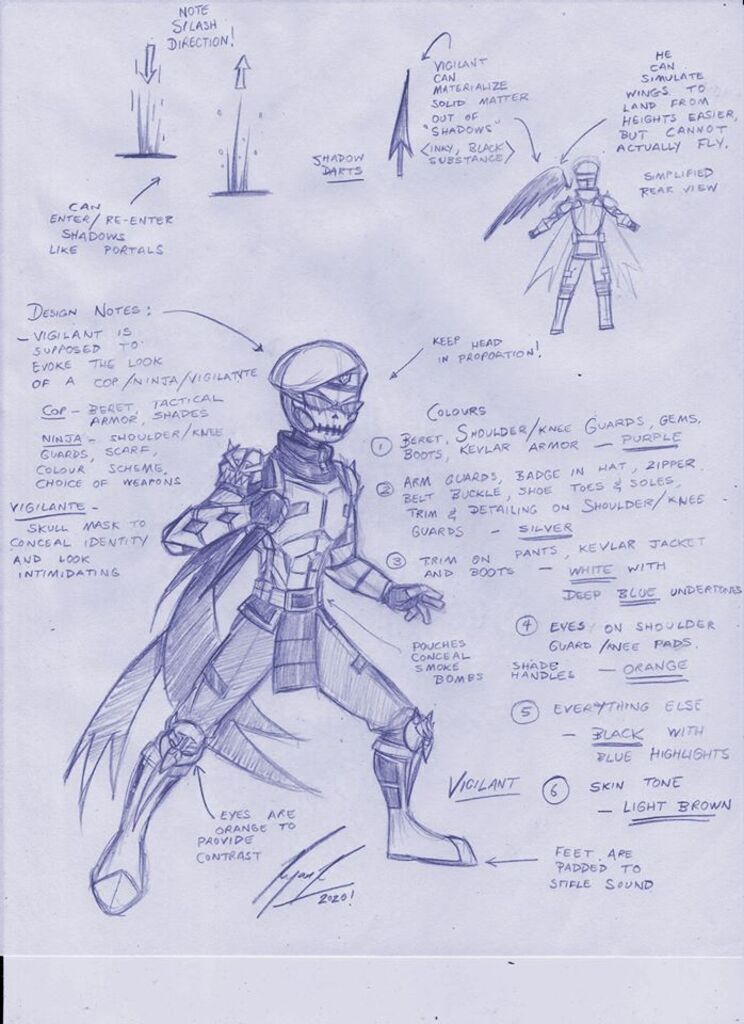 NOTE
SPLASH
DIRECTION!
CAN
ENTER/RE-ENTER
SHADOWS
LIKE PORTALS
SHADOW
DARTS
VIGILANT
CAN
MATERIALIZE
SOLID MATTER
OUT OF
"SHADOWS"
<INKY, BLACK
SUBSTANCE>
HE
CAN
SIMULATE
WINGS TO
LAND FROM
HEIGHTS EASIER,
BUT CANNOT
ACTUALLY FLY.
SIMPLIFIED
REAR VIEW
DESIGN NOTES:
- VIGILANT IS
SUPPOSED TO
EVOKE THE LOOK
OF A COP/NINJA/VIGILANTE
COP - BERET, TACTICAL
ARMOR, SHADES
NINJA - SHOULDER/KNEE
GUARDS, SCARF,
COLOUR SCHEME,
CHOICE OF WEAPONS
VIGILANTE -
SKULL MASK TO
CONCEAL IDENTITY
AND LOOK
INTIMIDATING
KEEP HEAD
IN PROPORTION!
COLOURS
1 BERET, SHOULDER/KNEE GUARDS, GEMS,
BOOTS, KEVLAR ARMOR - PURPLE
2 ARM GUARDS, BADGE IN HAT, ZIPPER
BELT BUCKLE, SHOE TOES & SOLES,
TRIM & DETAILING ON SHOULDER/KNEE
GUARDS - SILVER
3 TRIM ON PANTS, KEVLAR JACKET
AND BOOTS - WHITE WITH
DEEP BLUE UNDERTONES
4 EYES ON SHOULDER
GUARD/KNEE PADS.
SHADE
HANDLES - ORANGE
5 EVERYTHING ELSE
- BLACK WITH
BLUE HIGHLIGHTS
6 SKIN TONE
- LIGHT BROWN
POUCHES
CONCEAL
SMOKE
BOMBS
VIGILANT
EYES ARE
ORANGE TO
PROVIDE
CONTRAST
FEET ARE
PADDED TO
STIFLE SOUND
2020!